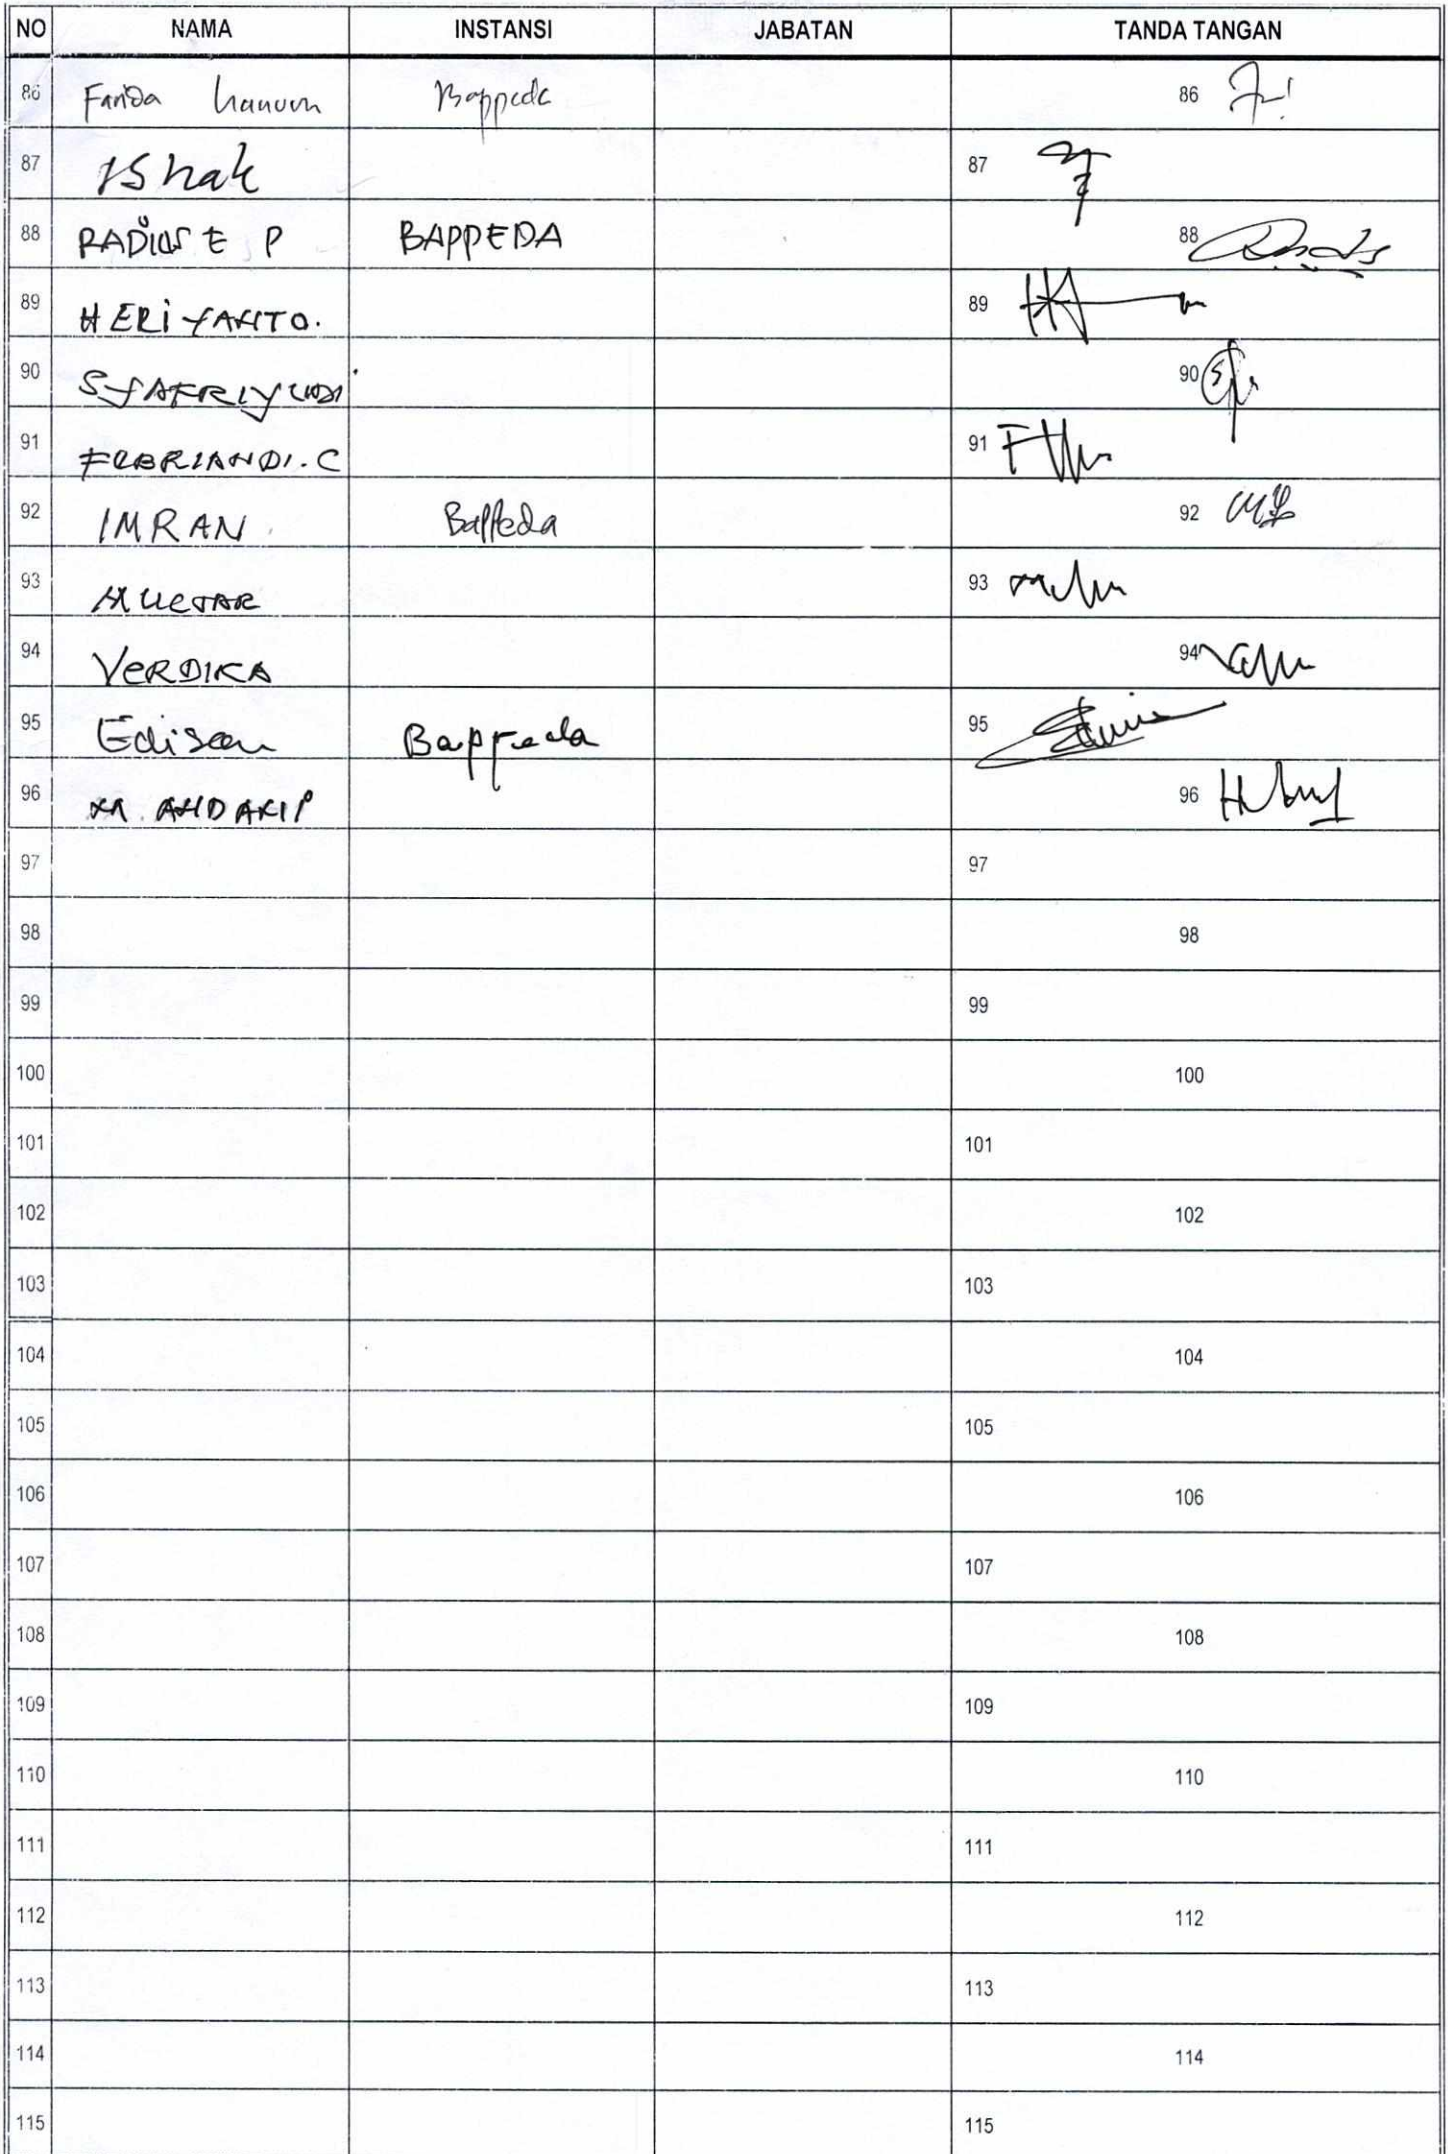 NO NAMA INSTANSI JABATAN TANDA TANGAN
86 Farida hanum Bappeda 86
87 Ishak 87
88 RADIUS E P BAPPEDA 88
89 HERIYANTO. 89
90 SYAFRIYUDI 90
91 FEBRIANDI. C 91
92 IMRAN Bappeda 92
93 MUCTAR 93
94 VERDIKA 94
95 Edison Bappeda 95
96 M. 96
97 97
98 98
99 99
100 100
101 101
102 102
103 103
104 104
105 105
106 106
107 107
108 108
109 109
110 110
111 111
112 112
113 113
114 114
115 115